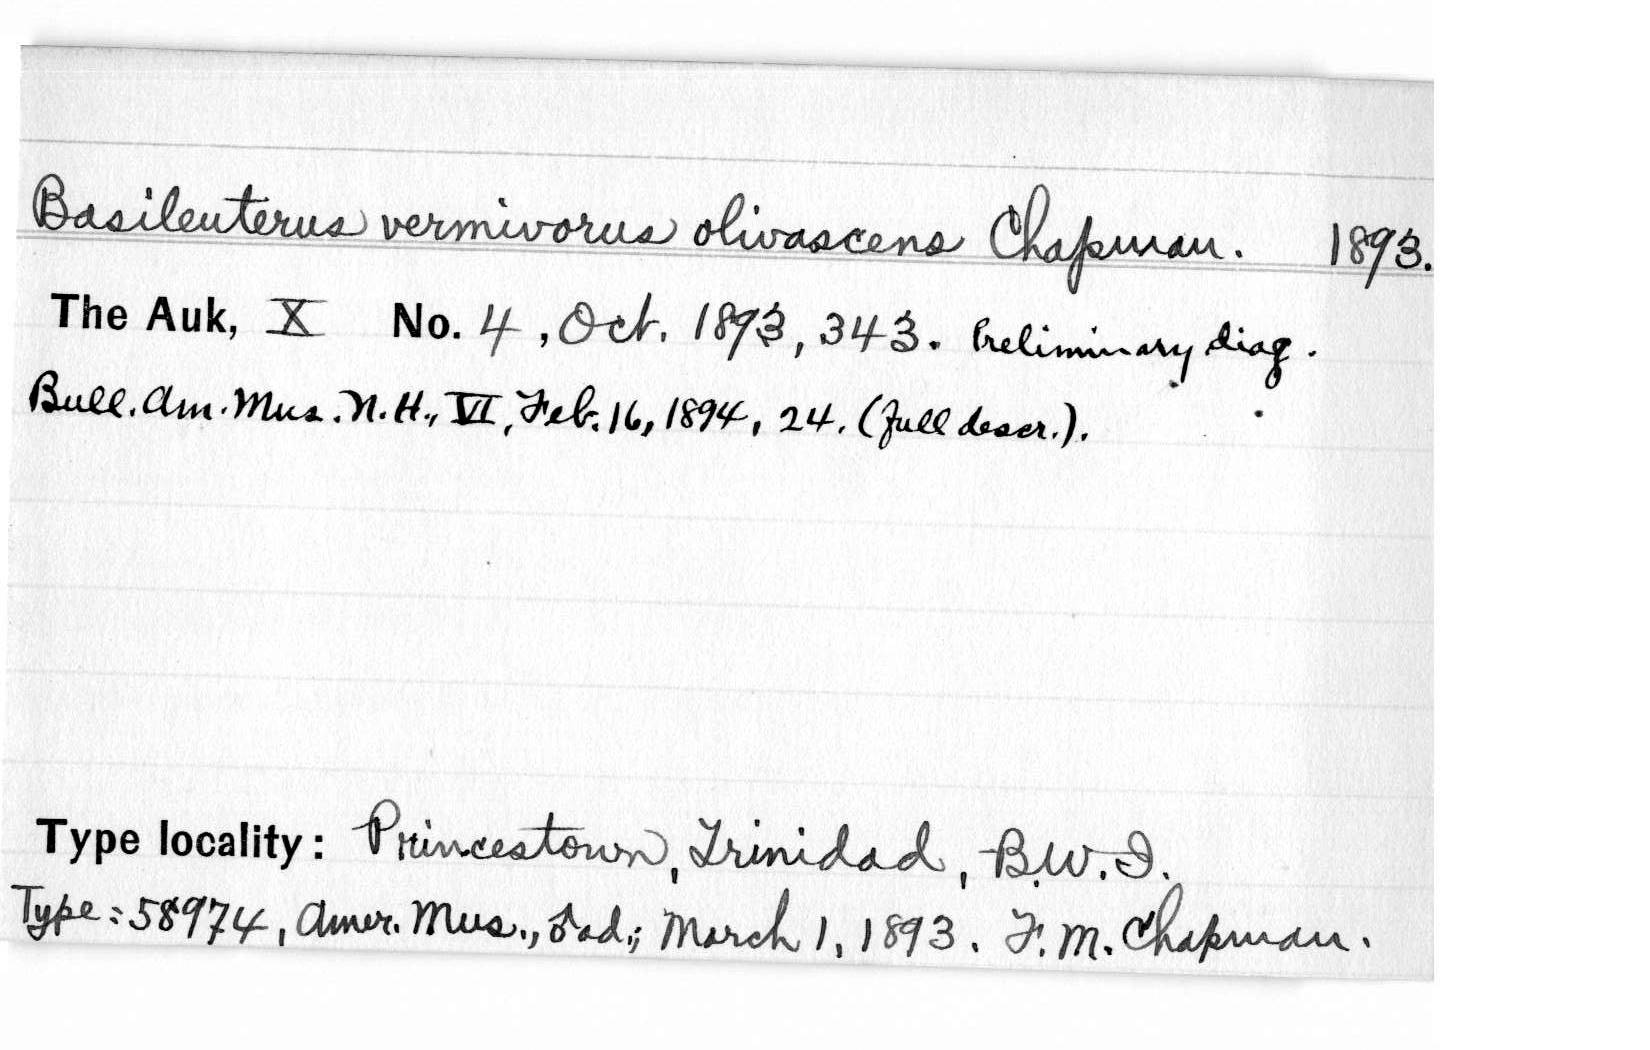 Basileuterus vermivorus olivascens Chapman. 1893.
The Auk, X No. 4, Oct. 1893, 343. Preliminary diag.
Bull. Am. Mus. N. H., VI, Feb. 16, 1894, 24. (full descr.).
Type locality: Princestown, Trinidad, B.W.I.
Type: 58974, Amer. Mus., ♂ ad.; March 1, 1893. F. M. Chapman.